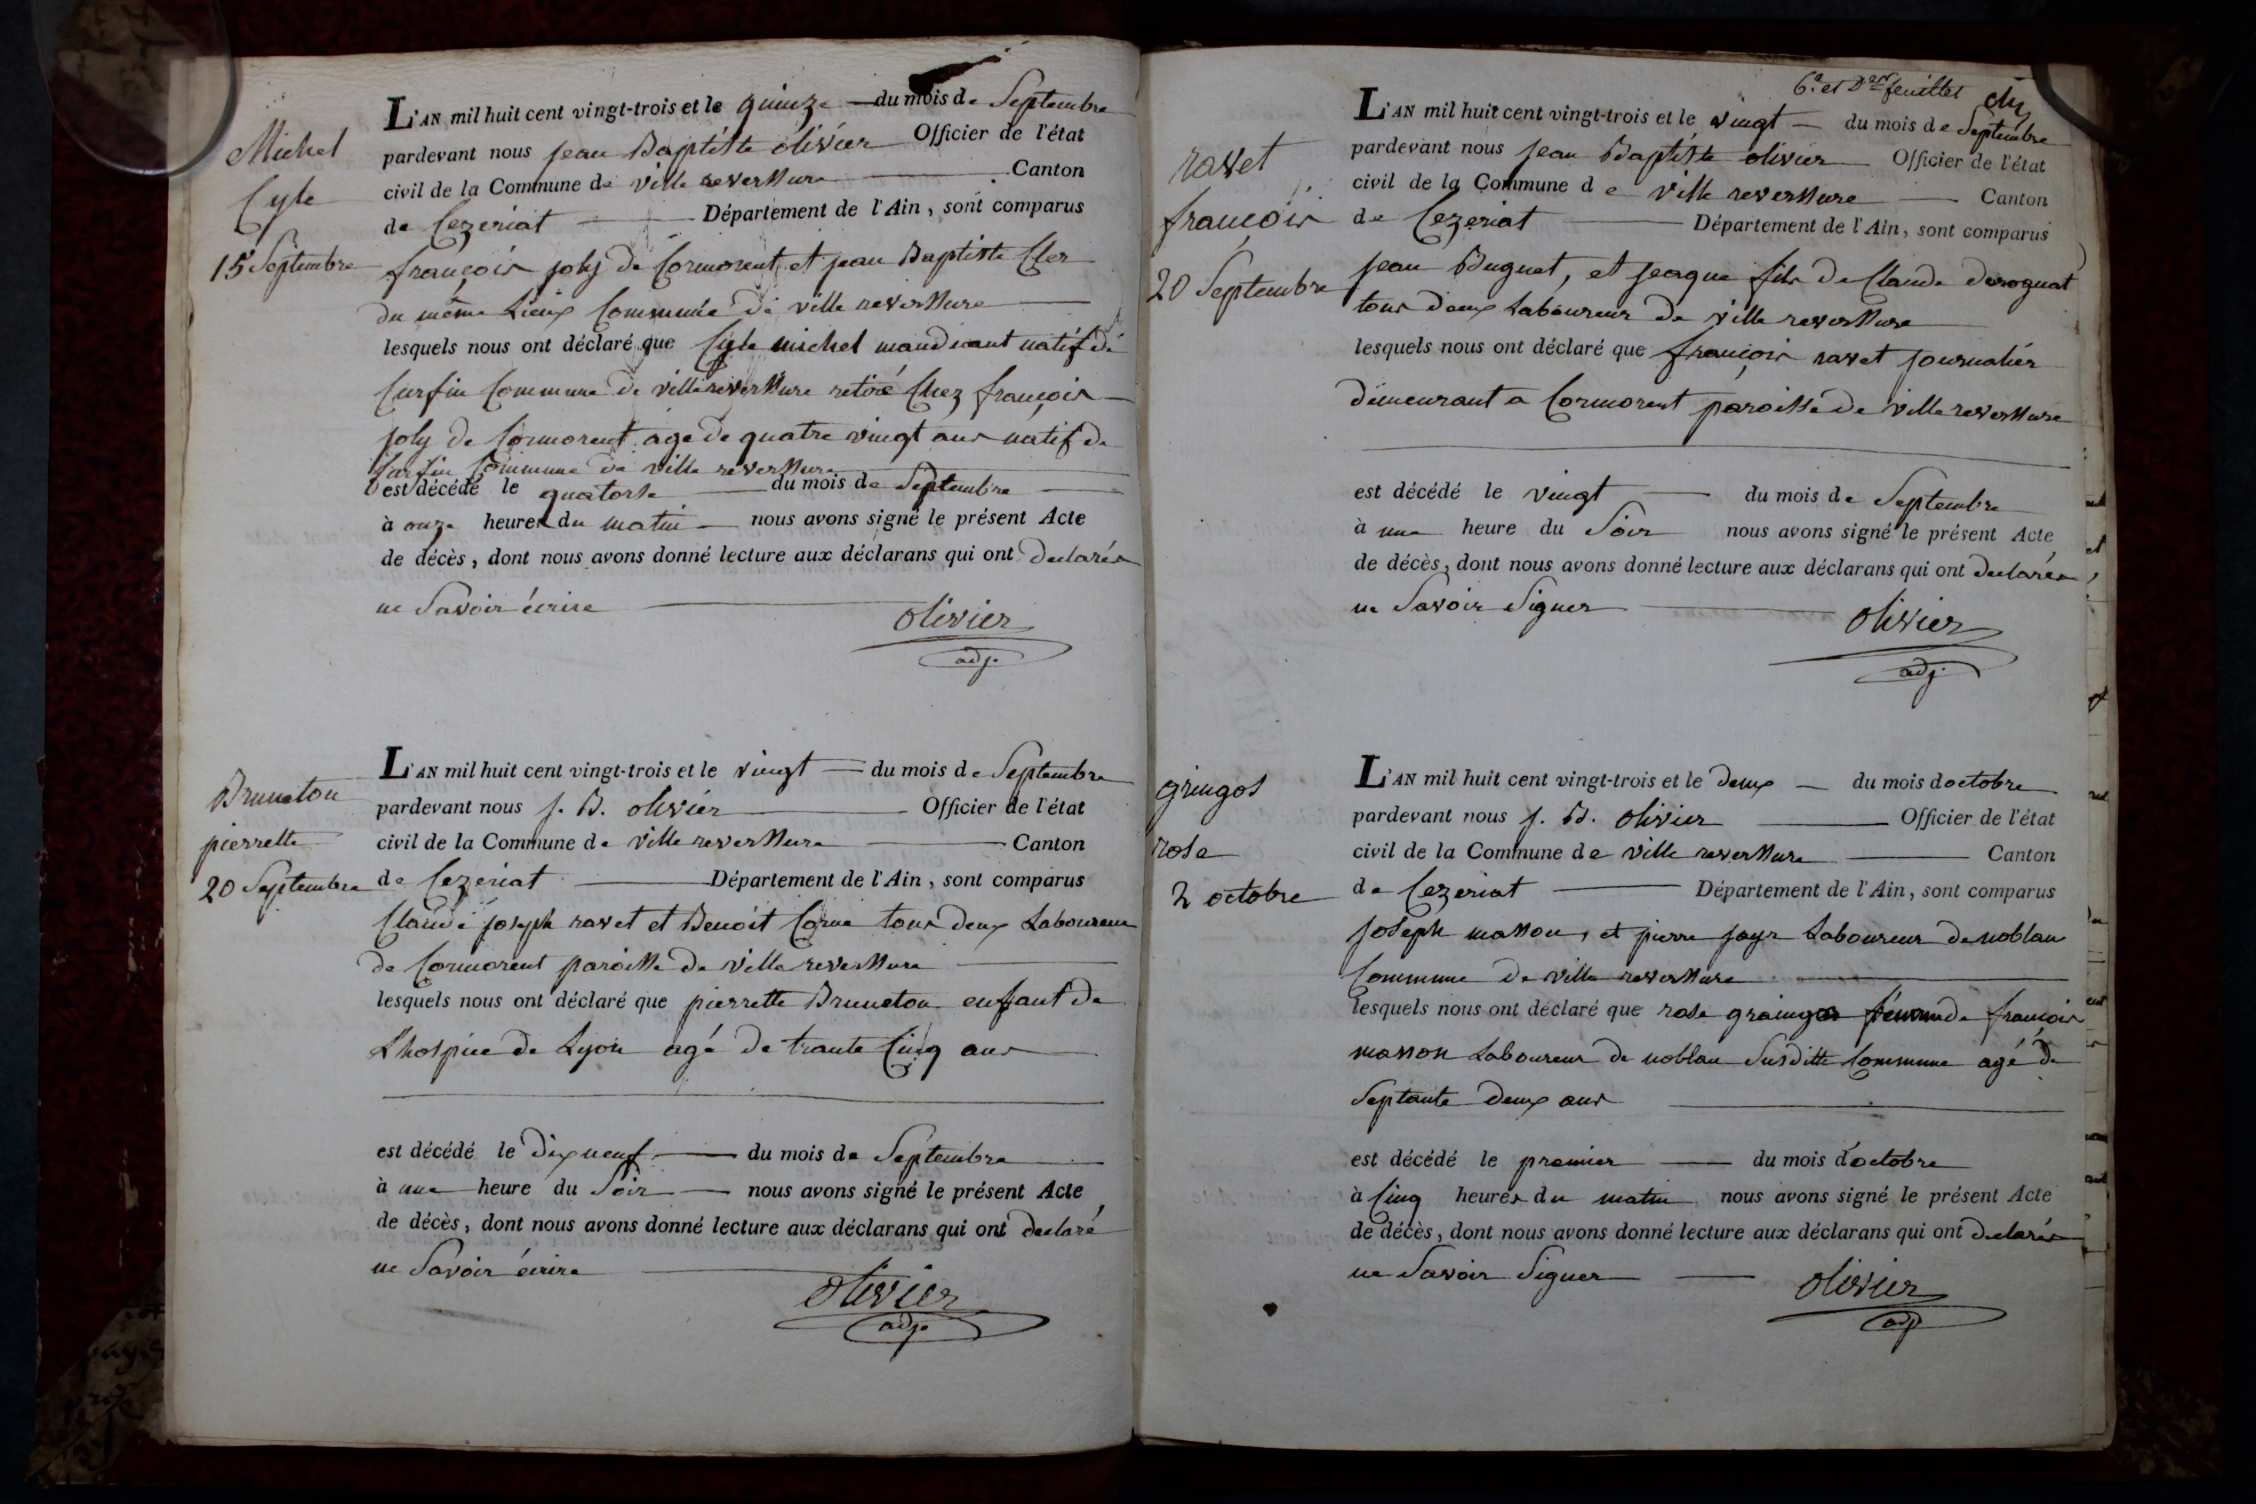 Michel
Cyle
15 Septembre
L'AN mil huit cent vingt-trois et le quinze du mois de Septembre
pardevant nous jean Baptiste olivier Officier de l'état
civil de la Commune de ville reverssure Canton
de Cezeriat Département de l'Ain, sont comparus
françois joly de Cormorent et jean Baptiste Cler
du même Lieux Commune de ville reverssure
lesquels nous ont déclaré que Cyle michel mandicant natif de
Curfin Commune de villereverssure retiré Chez françois
joly de Cormorent agé de quatre vingt ans natif de
Curfin Commune de ville reverssure
est décédé le quatorse du mois de Septembre
à onze heures du matin nous avons signé le présent Acte
de décès, dont nous avons donné lecture aux déclarans qui ont declarés
ne Savoir écrire
olivier
adj.
Bruneton
pierrette
20 Septembre
L'AN mil huit cent vingt-trois et le vingt du mois de Septembre
pardevant nous j. B. olivier Officier de l'état
civil de la Commune de ville reverssure Canton
de Cezeriat Département de l'Ain, sont comparus
Claude joseph ravet et Benoit Corne tous deux Laboureur
de Cormorent paroisse de ville reverssure
lesquels nous ont déclaré que pierrette Bruneton enfant de
Lhospice de Lyon agé de trante Cinq ans
est décédé le dixneuf du mois de Septembre
à une heure du Soir nous avons signé le présent Acte
de décès, dont nous avons donné lecture aux déclarans qui ont declaré
ne Savoir écrire
olivier
adj.
6e. et Der feuillet
ravet
françois
20 Septembre
L'AN mil huit cent vingt-trois et le vingt du mois de Septembre
pardevant nous jean Baptiste olivier Officier de l'état
civil de la Commune de ville reverssure Canton
de Cezeriat Département de l'Ain, sont comparus
jean Buguet, et jeaque fils de Claude deroguat
tous deux Laboureur de ville reverssure
lesquels nous ont déclaré que françois ravet journalier
demeurant a Cormorent paroisse de ville reverssure
est décédé le vingt du mois de Septembre
à une heure du Soir nous avons signé le présent Acte
de décès, dont nous avons donné lecture aux déclarans qui ont declarés
ne Savoir Signer
olivier
adj.
gringos
rose
2 octobre
L'AN mil huit cent vingt-trois et le deux du mois doctobre
pardevant nous j. B. olivier Officier de l'état
civil de la Commune de ville reverssure Canton
de Cezeriat Département de l'Ain, sont comparus
joseph masson, et pierre jayr Laboureur de noblan
Commune de ville reverssure
lesquels nous ont déclaré que rose graingos femme de françois
masson Laboureur de noblan Susditte Commune agé de
Septante deux ans
est décédé le premier du mois d'octobre
à Cinq heures du matin nous avons signé le présent Acte
de décès, dont nous avons donné lecture aux déclarans qui ont declarés
ne Savoir Signer
olivier
adj